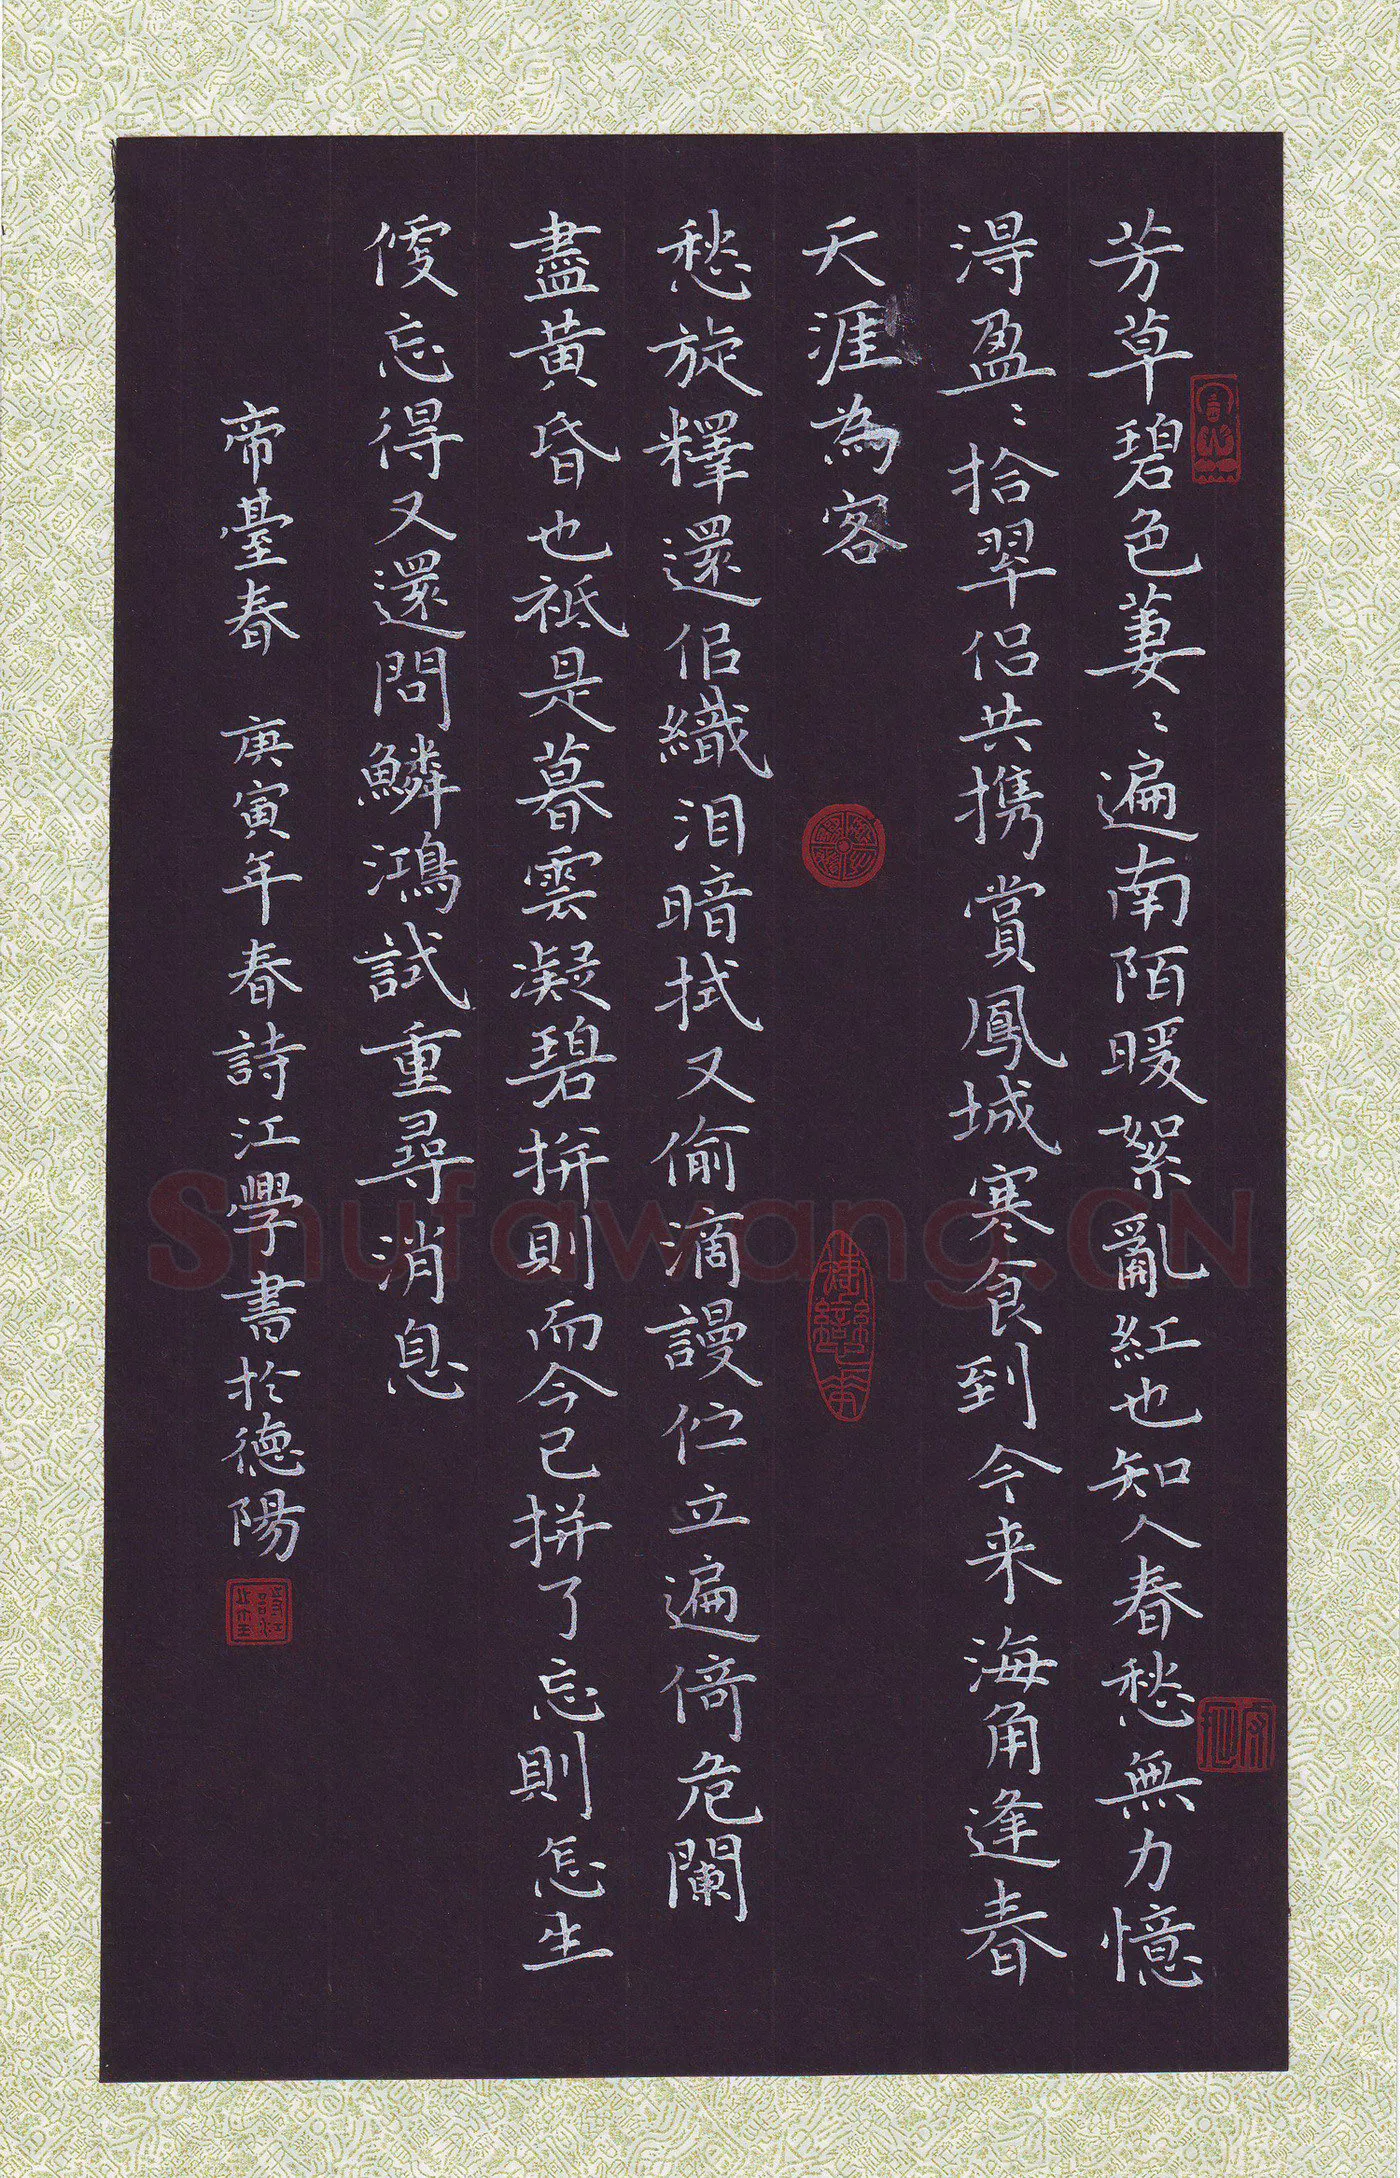 芳草碧色萋〻遍南陌暖絮亂紅也知人春愁無力憶
得盈〻拾翠侣共携賞鳳城寒食到今来海角逢春
天涯為客
愁旋釋還佀織泪暗拭又偷滴謾伫立遍倚危闌
盡黄昏也祗是暮雲凝碧拼則而今已拼了忘則怎生
便忘得又還問鱗鴻試重尋消息
帝臺春 庚寅年春詩江學書於德陽
Shufawang.CN